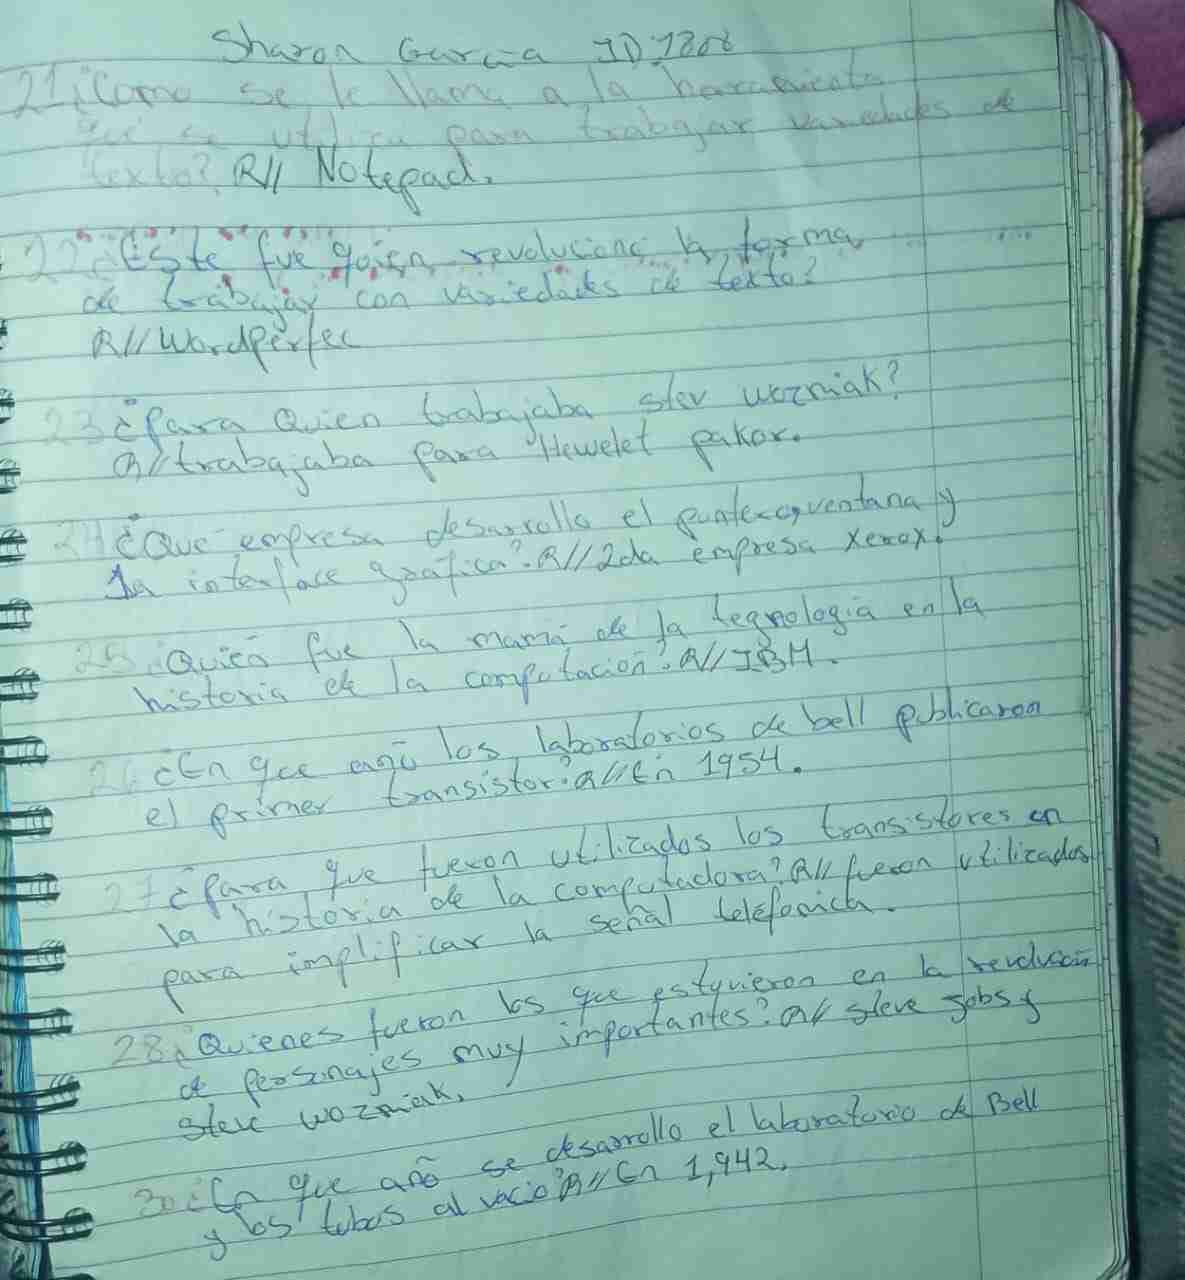 Sharon Garcia ID:1206
21 ¿Como se le llama a la herramienta
que se utiliza para trabajar variedades de
texto? R// Notepad.
22 ¿Este fue quien revoluciono la forma
de trabajar con variedades de texto?
R// Wordperfec
23 ¿Para Quien trabajaba stev wozniak?
R// trabajaba para Hewelet pakar.
24 ¿Que empresa desarrollo el puntero, ventana y
la interface grafica? R// 2da empresa xerox.
25 ¿Quien fue la mamá de la tegnologia en la
historia de la computacion? R// IBM.
26 ¿En que año los laboratorios de bell publicaron
el primer transistor? R// En 1954.
27 ¿Para que fueron utilizados los transistores en
la historia de la computadora? R// fueron utilizados
para implificar la señal telefonica.
28 ¿Quienes fueron los que estuvieron en la revolucion
de personajes muy importantes? R// steve jobs y
steve wozniak.
30 ¿En que año se desarrollo el laboratorio de Bell
y los tubos al vacio? R// En 1,942.